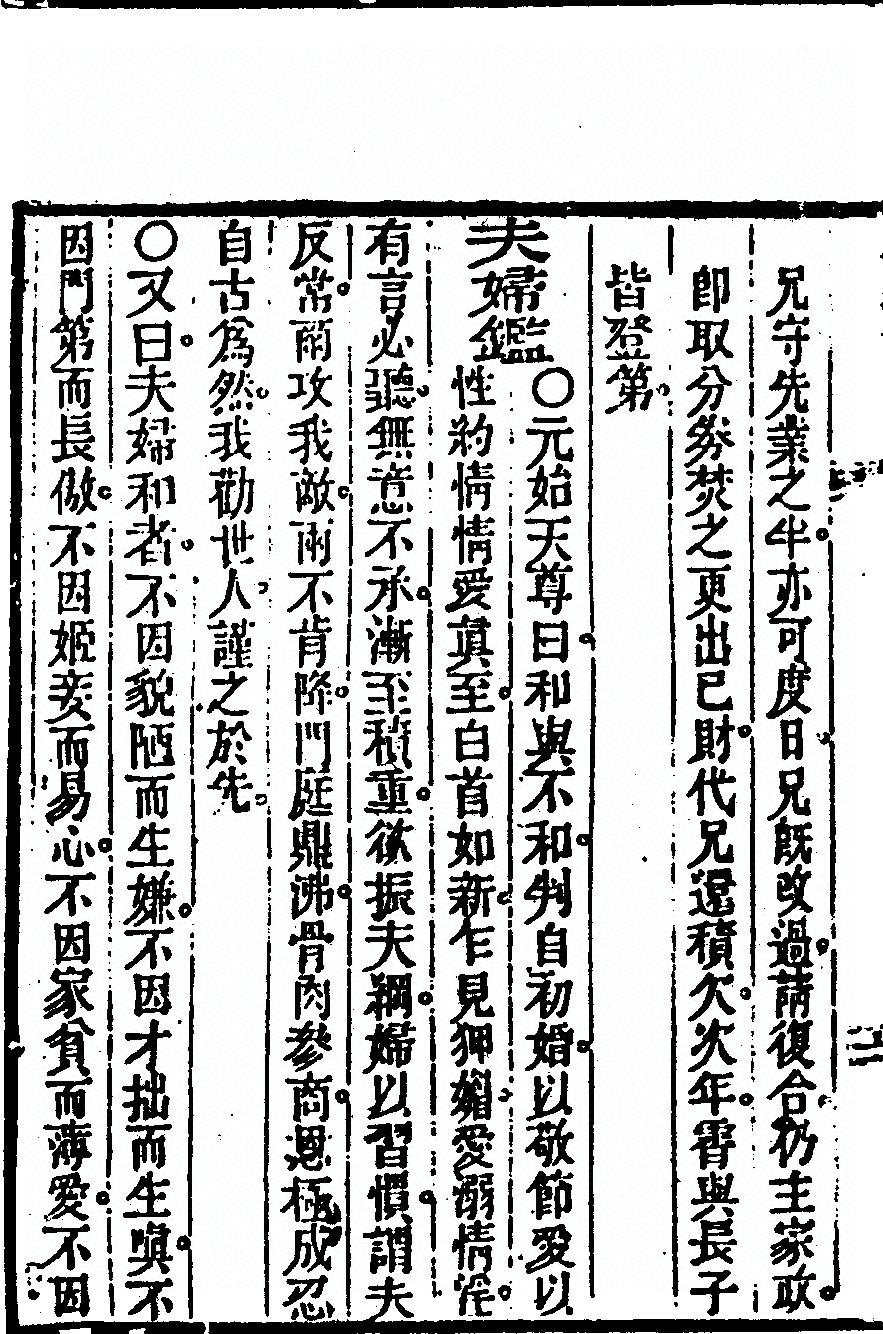 兄守先業之半亦可度日兄既改過請復合仍主家政
即取分券焚之更出己財代兄還積欠次年霄與長子
皆登第
夫婦鑑
〇元始天尊曰和與不和判自初婚以敬節愛以
性約情情愛真至白首如新乍見狎媚愛溺情淫
有言必聽無意不承漸至積重欲振夫綱婦以習慣謂夫
反常爾攻我敵爾不肯降門庭鼎沸骨肉參商恩極成忍
自古為然我勸世人謹之於先
〇又曰夫婦和者不因貌陋而生嫌不因才拙而生嗔不
因門第而長傲不因姬妾而易心不因家貧而薄愛不因